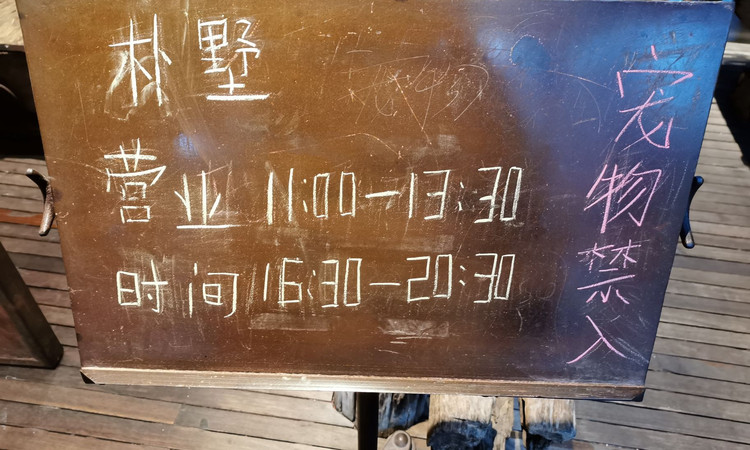 林墅
营业 11:00-13:30
时间 16:30-20:30
宠物禁入